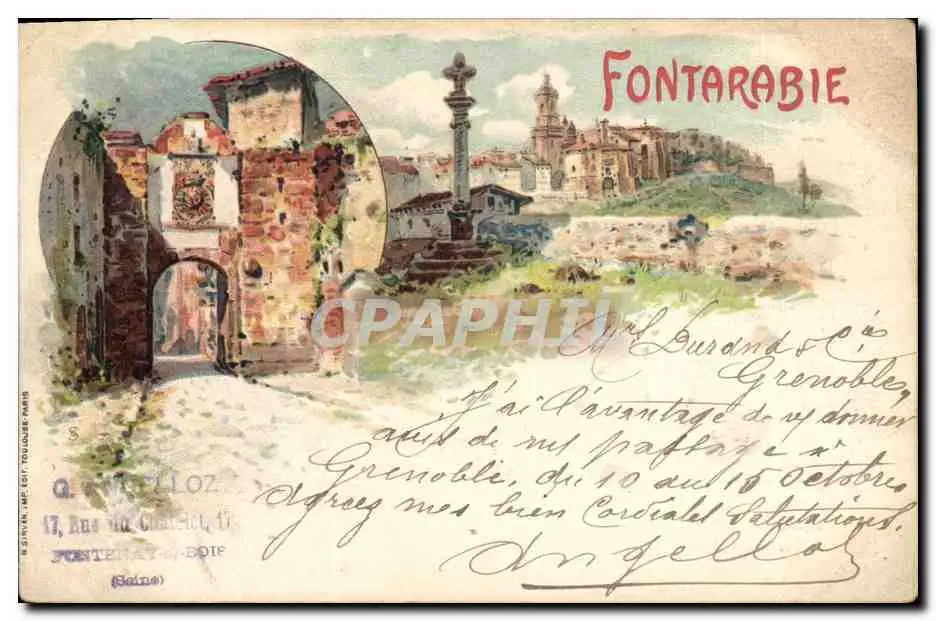 FONTARABIE
CPAPHIL
Mrs Durand & Cie
Grenobles
J'ai l'avantage de vs donner
avis de mes passage à
Grenoble, du 10 au 15 Octobre,
Agreez mes bien Cordiales Salutations.
Angelloz
G. ANGELLOZ
17, Rue du 17
FONTENAY-s-BOIS
(Seine)
N. SIRVEN, IMP. EDIT. TOULOUSE-PARIS